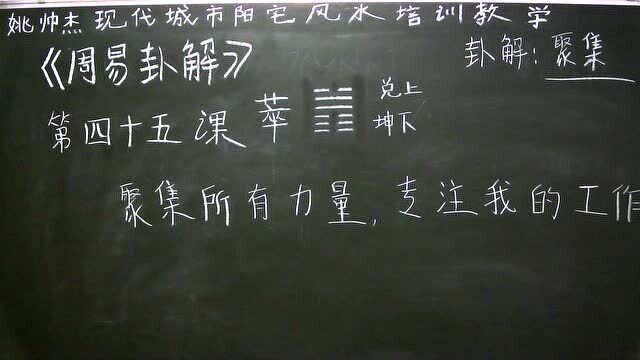 姚帅杰现代城市阳宅风水培训教学
《周易卦解》
卦解：聚集
第四十五课 萃 兑上
坤下
聚集所有力量，专注我的工作